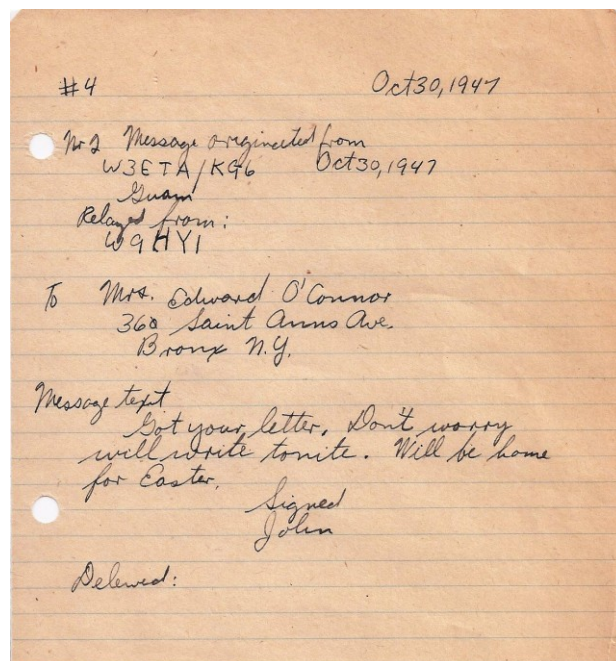 #4 Oct 30, 1947
Nr 2 Message originated from
W3ETA/KG6 Oct 30, 1947
Guam
Relayed from:
W9HYI
To Mrs. Edward O'Connor
360 Saint Anns Ave.
Bronx N.Y.
Message text
Got your letter. Don't worry
will write tonite. Will be home
for Easter.
Signed
John
Delewed: